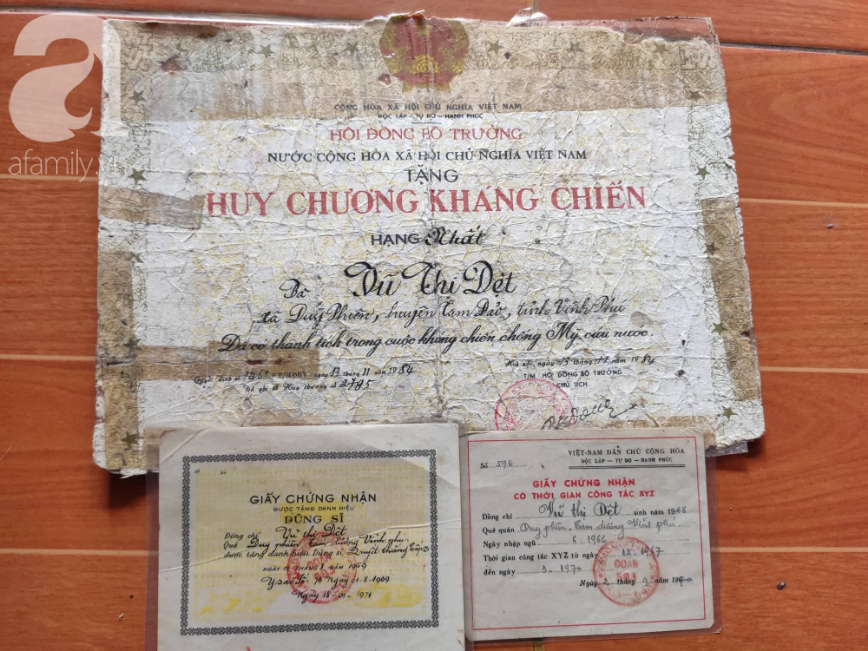 a
afamily.
CỘNG HÒA XÃ HỘI CHỦ NGHĨA VIỆT NAM
ĐỘC LẬP - TỰ DO - HẠNH PHÚC
HỘI ĐỒNG BỘ TRƯỞNG
NƯỚC CỘNG HÒA XÃ HỘI CHỦ NGHĨA VIỆT NAM
TẶNG
HUY CHƯƠNG KHÁNG CHIẾN
HẠNG Nhất
Bà Vũ Thị Dệt
xã Duy Phiên, huyện Tam Đảo, tỉnh Vĩnh Phú
Đã có thành tích trong cuộc kháng chiến chống Mỹ cứu nước.
Hà nội, ngày 13 tháng 11 năm 1984
ngày 13 tháng 11 năm 1984
T/M HỘI ĐỒNG BỘ TRƯỞNG
CHỦ TỊCH
Số
GIẤY CHỨNG NHẬN
ĐƯỢC TẶNG DANH HIỆU
DŨNG SĨ
Đồng chí Vũ thị Dệt
Quê Duy phiên Tam dương Vĩnh phú
được tặng danh hiệu Dũng sĩ Quyết thắng cấp 3
1969
1969
1971
VIỆT-NAM DÂN CHỦ CỘNG HÒA
ĐỘC LẬP - TỰ DO - HẠNH PHÚC
Số 596
GIẤY CHỨNG NHẬN
CÓ THỜI GIAN CÔNG TÁC XYZ
Đồng chí Vũ thị Dệt sinh năm 1948
Quê quán Duy phiên Tam dương Vĩnh phú
Ngày nhập ngũ 6.1966
Thời gian công tác XYZ từ ngày 12.1967
đến ngày 3.1970
Ngày 2 tháng 9 năm 1970
ĐOÀN
593